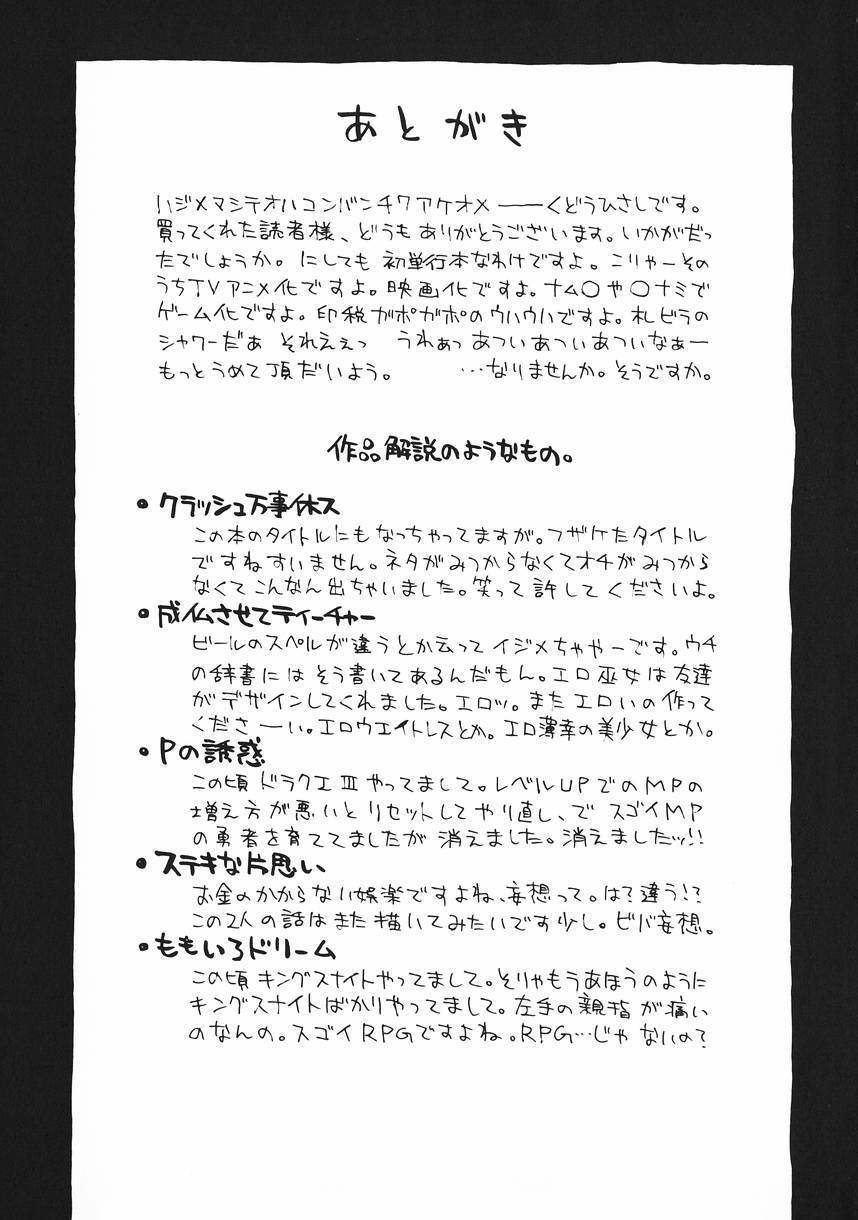 あとがき
ハジメマシテオハコンバンチワアケオメ ――くどうひさしです。
買ってくれた読者様、どうもありがとうございます。いかがだっ
たでしょうか。にしても 初単行本なわけですよ。こりゃーその
うちTVアニメ化ですよ。映画化ですよ。ナム○や○ナミで
ゲーム化ですよ。印税ガポガポのウハウハですよ。札ビラの
シャワーだぁ それえぇっ うわぁっ あついあついあついなぁー
もっとうめて頂だいよう。 …なりませんか。そうですか。
作品解説のようなもの。
• クラッシュ万事休ス
この本のタイトルにもなっちゃってますが。フザケたタイトル
ですねすいません。ネタがみつからなくてオチがみつから
なくてこんなん出ちゃいました。笑って許してくださいよ。
• 成仏させてティーチャー
ビールのスペルが違うとか云ってイジメちゃやーです。ウチ
の辞書にはそう書いてあるんだもん。エロ巫女は友達
がデザインしてくれました。エロッ。またエロいの作って
くださーい。エロウエイトレスとか。エロ薄幸の美少女とか。
• Pの誘惑
この頃ドラクエⅢやってまして。レベルUPでのMPの
増え方が悪いとリセットしてやり直し、で スゴイMP
の勇者を育ててましたが 消えました。消えましたッ!!
• ステキな片思い
お金のかからない娯楽ですよね、妄想って。は?違う!?
この2人の話はまた描いてみたいです少し。ビバ妄想。
• ももいろドリーム
この頃キングスナイトやってまして。そりゃもうあほうのように
キングスナイトばかりやってまして。左手の親指が痛い
のなんの。スゴイRPGですよね。RPG…じゃないの?